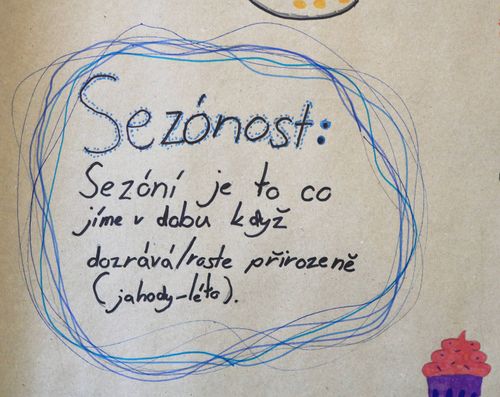 Sezónost:
Sezóní je to co
jíme v dobu když
dozrává/raste přirozeně
(jahody-léto).